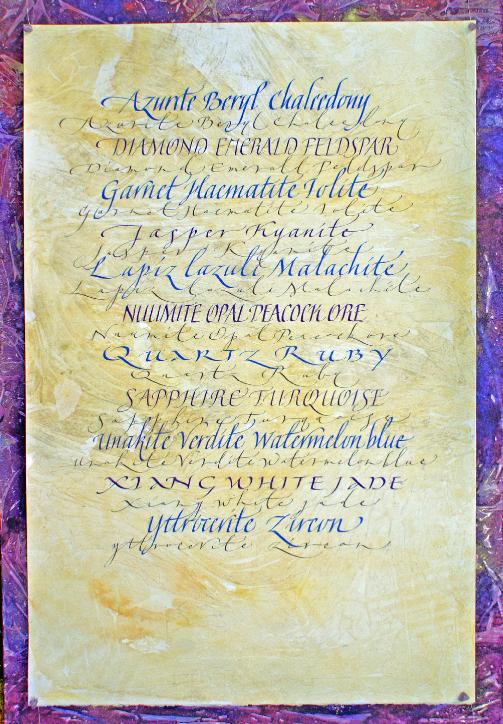 Azurite Beryl Chalcedony
Azurite Beryl Chalcedony
DIAMOND EMERALD FELDSPAR
Diamond Emerald Feldspar
Garnet Haematite Iolite
Garnet Haematite Iolite
Jasper Kyanite
Jasper Kyanite
Lapiz lazuli Malachite
Lapiz lazuli Malachite
NUUMITE OPAL PEACOCK ORE
Nuumite Opal Peacock ore
QUARTZ RUBY
Quartz Ruby
SAPPHIRE TURQUOISE
Sapphire
Unakite Verdite Watermelon blue
unakite Verdite Watermelon blue
XIANG WHITE JADE
Xiang white jade
Yttrocerite Zircon
yttrocerite Zircon